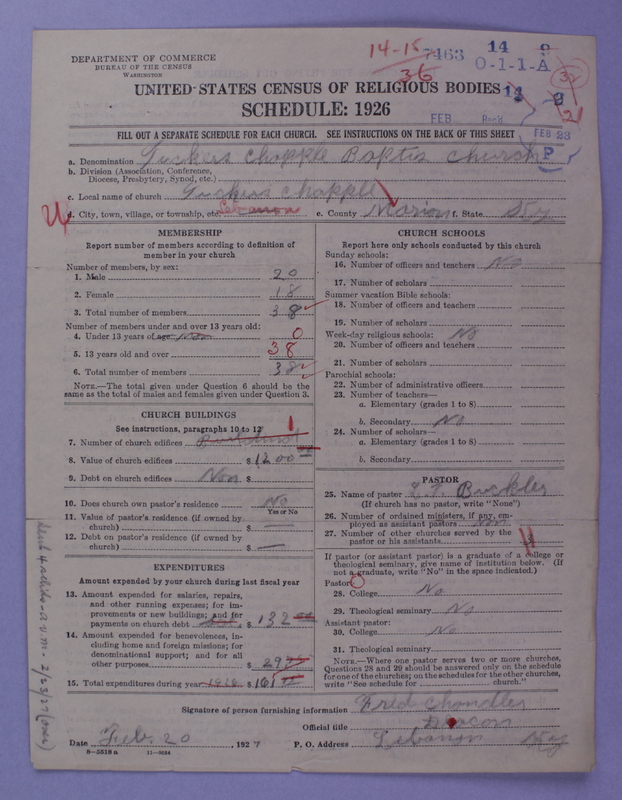 DEPARTMENT OF COMMERCE
BUREAU OF THE CENSUS
WASHINGTON
14-15
36
7463 14 9
O-1-1-A
32
UNITED STATES CENSUS OF RELIGIOUS BODIES
14 9
21
SCHEDULE: 1926
FEB
FEB 23
P
FILL OUT A SEPARATE SCHEDULE FOR EACH CHURCH. SEE INSTRUCTIONS ON THE BACK OF THIS SHEET
a. Denomination Tuckers Chapple Baptis church
b. Division (Association, Conference,
Diocese, Presbytery, Synod, etc.)
c. Local name of church Tuckers Chapple
d. City, town, village, or township, etc. Lebanon e. County Marion f. State Ky
MEMBERSHIP
Report number of members according to definition of
member in your church
Number of members, by sex:
1. Male 20
2. Female 18
3. Total number of members 38
Number of members under and over 13 years old:
4. Under 13 years of age Non 0
5. 13 years old and over 38
6. Total number of members 38
NOTE.—The total given under Question 6 should be the
same as the total of males and females given under Question 3.
CHURCH BUILDINGS
See instructions, paragraphs 10 to 12
7. Number of church edifices 1
8. Value of church edifices $ 1200
9. Debt on church edifices Non $
10. Does church own pastor's residence No
Yes or No
11. Value of pastor's residence (if owned by
church) $ —
12. Debt on pastor's residence (if owned by
church) $ —
EXPENDITURES
Amount expended by your church during last fiscal year
13. Amount expended for salaries, repairs,
and other running expenses; for im-
provements or new buildings; and for
payments on church debt $ 132
14. Amount expended for benevolences, in-
cluding home and foreign missions; for
denominational support; and for all
other purposes $ 29
15. Total expenditures during year 1926 $ 161
CHURCH SCHOOLS
Report here only schools conducted by this church
Sunday schools:
16. Number of officers and teachers No
17. Number of scholars
Summer vacation Bible schools:
18. Number of officers and teachers
19. Number of scholars
Week-day religious schools: No
20. Number of officers and teachers
21. Number of scholars
Parochial schools:
22. Number of administrative officers
23. Number of teachers—
a. Elementary (grades 1 to 8)
b. Secondary No
24. Number of scholars—
a. Elementary (grades 1 to 8)
b. Secondary
PASTOR
25. Name of pastor Buckley
(If church has no pastor, write "None")
26. Number of ordained ministers, if any, em-
ployed as assistant pastors Non
27. Number of other churches served by the
pastor or his assistants
If pastor (or assistant pastor) is a graduate of a college or
theological seminary, give name of institution below. (If
not a graduate, write "No" in the space indicated.)
Pastor:
28. College No
29. Theological seminary No
Assistant pastor:
30. College No
31. Theological seminary
NOTE.—Where one pastor serves two or more churches,
Questions 28 and 29 should be answered only on the schedule
for one of the churches; on the schedules for the other churches,
write "See schedule for church."
Signature of person furnishing information Fred Chandler
Official title Deacon
Date Feb. 20 1927 P. O. Address Lebanon Ky
8—5518 a 11—9034